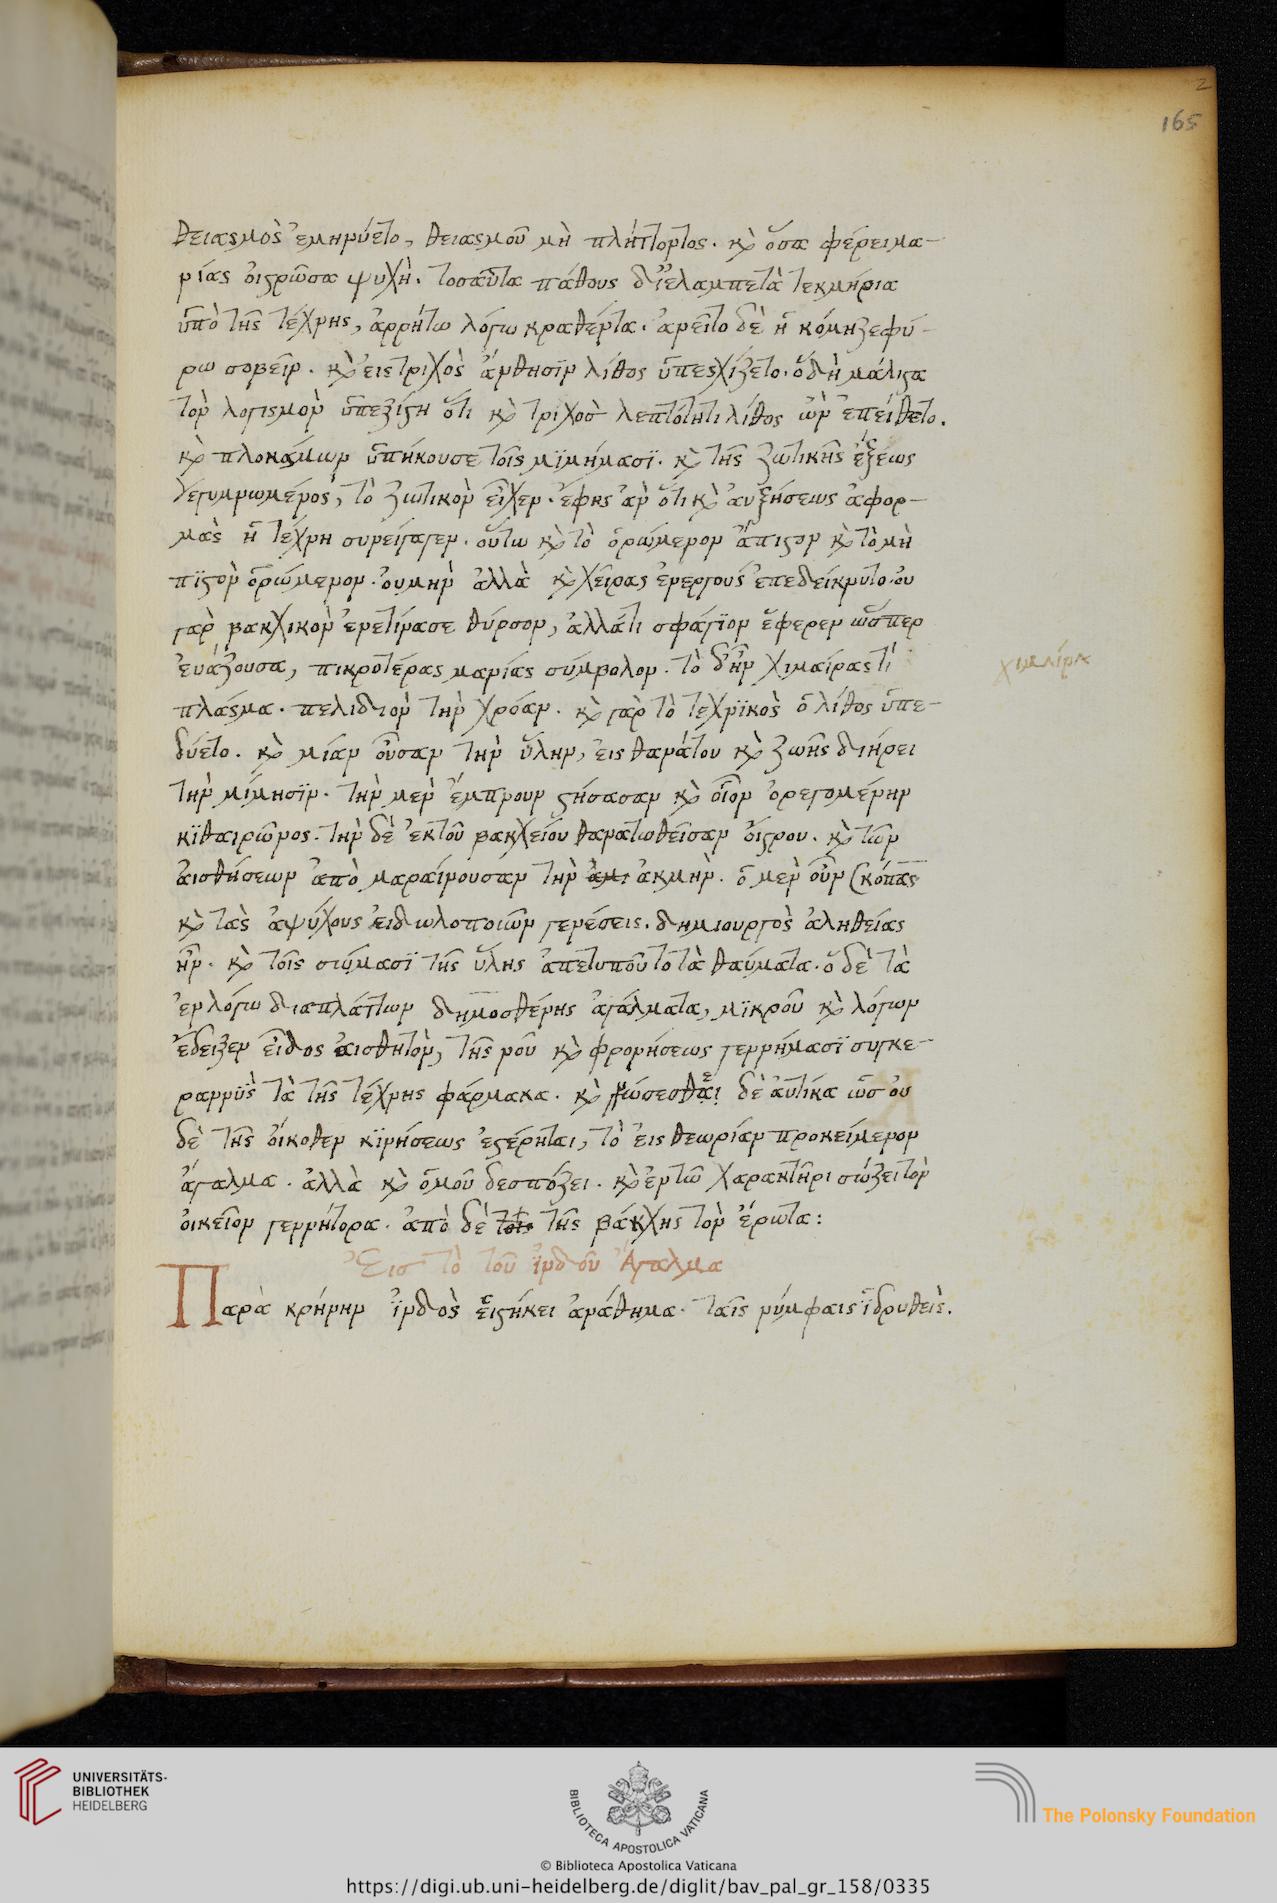 2
165
θειασμὸς ἐμηνύετο, θειασμοῦ μὴ πλήττοντος. κỳ ὅσα φέρει μα-
νίας οἰστρῶσα ψυχὴ. τοσαῦτα πάθους διέλαμπε τὰ τεκμήρια
ὑπὸ τῆς τέχνης, ἀρρήτω λόγω κραθέντα. ἀνεῖτο δὲ ἡ κόμη ζεφύ-
ρω σοβεῖν. κỳ εἰς τριχὸς ἄνθησϊν λίθος ὑπεσχίζετο. ὃ δὴ μάλιστα
τὸν λογισμὸν ὑπεξίστη ὅτι κỳ τριχοσ λεπτότητι λίθος ὢν ἐπείθετο.
κỳ πλοκάμων ὑπήκουσε τοῖς μϊμήμασϊ. κỳ τῆς ζωτικῆς ἕξεως
γεγυμνωμένος, τὸ ζωτικὸν εἶχεν. ἔφης ἂν ὅτι κỳ αὐξήσεως ἀφορ-
μὰς ἡ τέχνη συνείσαγεν. οὕτω κỳ τὸ ὁρώμενον ἄπιστον κỳ τὸ μὴ
πϊστὸν ὁρώμενον. ου μὴν ἀλλὰ κỳ χεῖρας ἐνεργοὺς ἐπεδείκνυτο. ου
γὰρ βακχικὸν ἐνετίνασε θύρσον, ἀλλά τι σφάγϊον ἔφερεν ὥσπερ
εὐάζουσα, πικροτέρας μανίας σύμβολον. τὸ δ' ἦν χιμαίρας τί
χιμαίρα
πλάσμα. πελιδνὸν τὴν χρόαν. κỳ γὰρ τὸ τεχνϊκὸς ὁ λίθος ὑπε-
δύετο. κỳ μίαν οὖσαν τὴν ὕλην, εἰς θανάτου κỳ ζωῆς διήρει
τὴν μίμησϊν. τὴν μεν ἔμπνουν στήσασαν κỳ οἷον ὀρεγομένην
κϊθαιρῶνος. τὴν δὲ ἐκ τοῦ βακχείου θανατωθεῖσαν οἴστρου. κỳ τῶν
αἰσθήσεων ἀπὸ μαραίνουσάν τὴν ἀκμὴν. ὁ μεν οὖν Σκόπας
κỳ τὰς ἀψύχους εἰδωλοποιῶν γενέσεις. δημιουργὸς ἀληθείας
ἦν. κỳ τοῖς σώμασϊ τῆς ὕλης ἀπετυποῦτο τὰ θαύματα. ὁ δὲ τὰ
ἐν λόγω διαπλάττων δημοσθένης ἀγάλματα, μϊκροῦ κỳ λόγων
ἔδειξεν εἶδος αἰσθητὸν, τῆς νοῦ κỳ φρονήσεως γεννήμασϊ συγκε-
ραννϋς τὰ τῆς τέχνης φάρμακα. κỳ γνώσεσθε δὲ αὐτίκα ὡσ ου
δὲ τῆς οἴκοθεν κϊνήσεως ἐστέρηται, τὸ εἰς θεωρίαν προκείμενον
ἄγαλμα. ἀλλὰ κỳ ὁμοῦ δεσπόζει. κỳ ἐν τῶ χαρακτῆρι σώζει τὸν
οἰκεῖον γεννήτορα. ἀπὸ δὲ τῆς βάκχης τὸν ἔρωτα:
Εισ τὸ τοῦ ἰνδοῦ Ἄγαλμα
Παρὰ κρήνην ἰνδὸς εἱστήκει ἀνάθημα. ταῖς νύμφαις ἱδρυθεὶς.
UNIVERSITÄTS-
BIBLIOTHEK
HEIDELBERG
BIBLIOTECA APOSTOLICA VATICANA
The Polonsky Foundation
© Biblioteca Apostolica Vaticana
https://digi.ub.uni-heidelberg.de/diglit/bav_pal_gr_158/0335